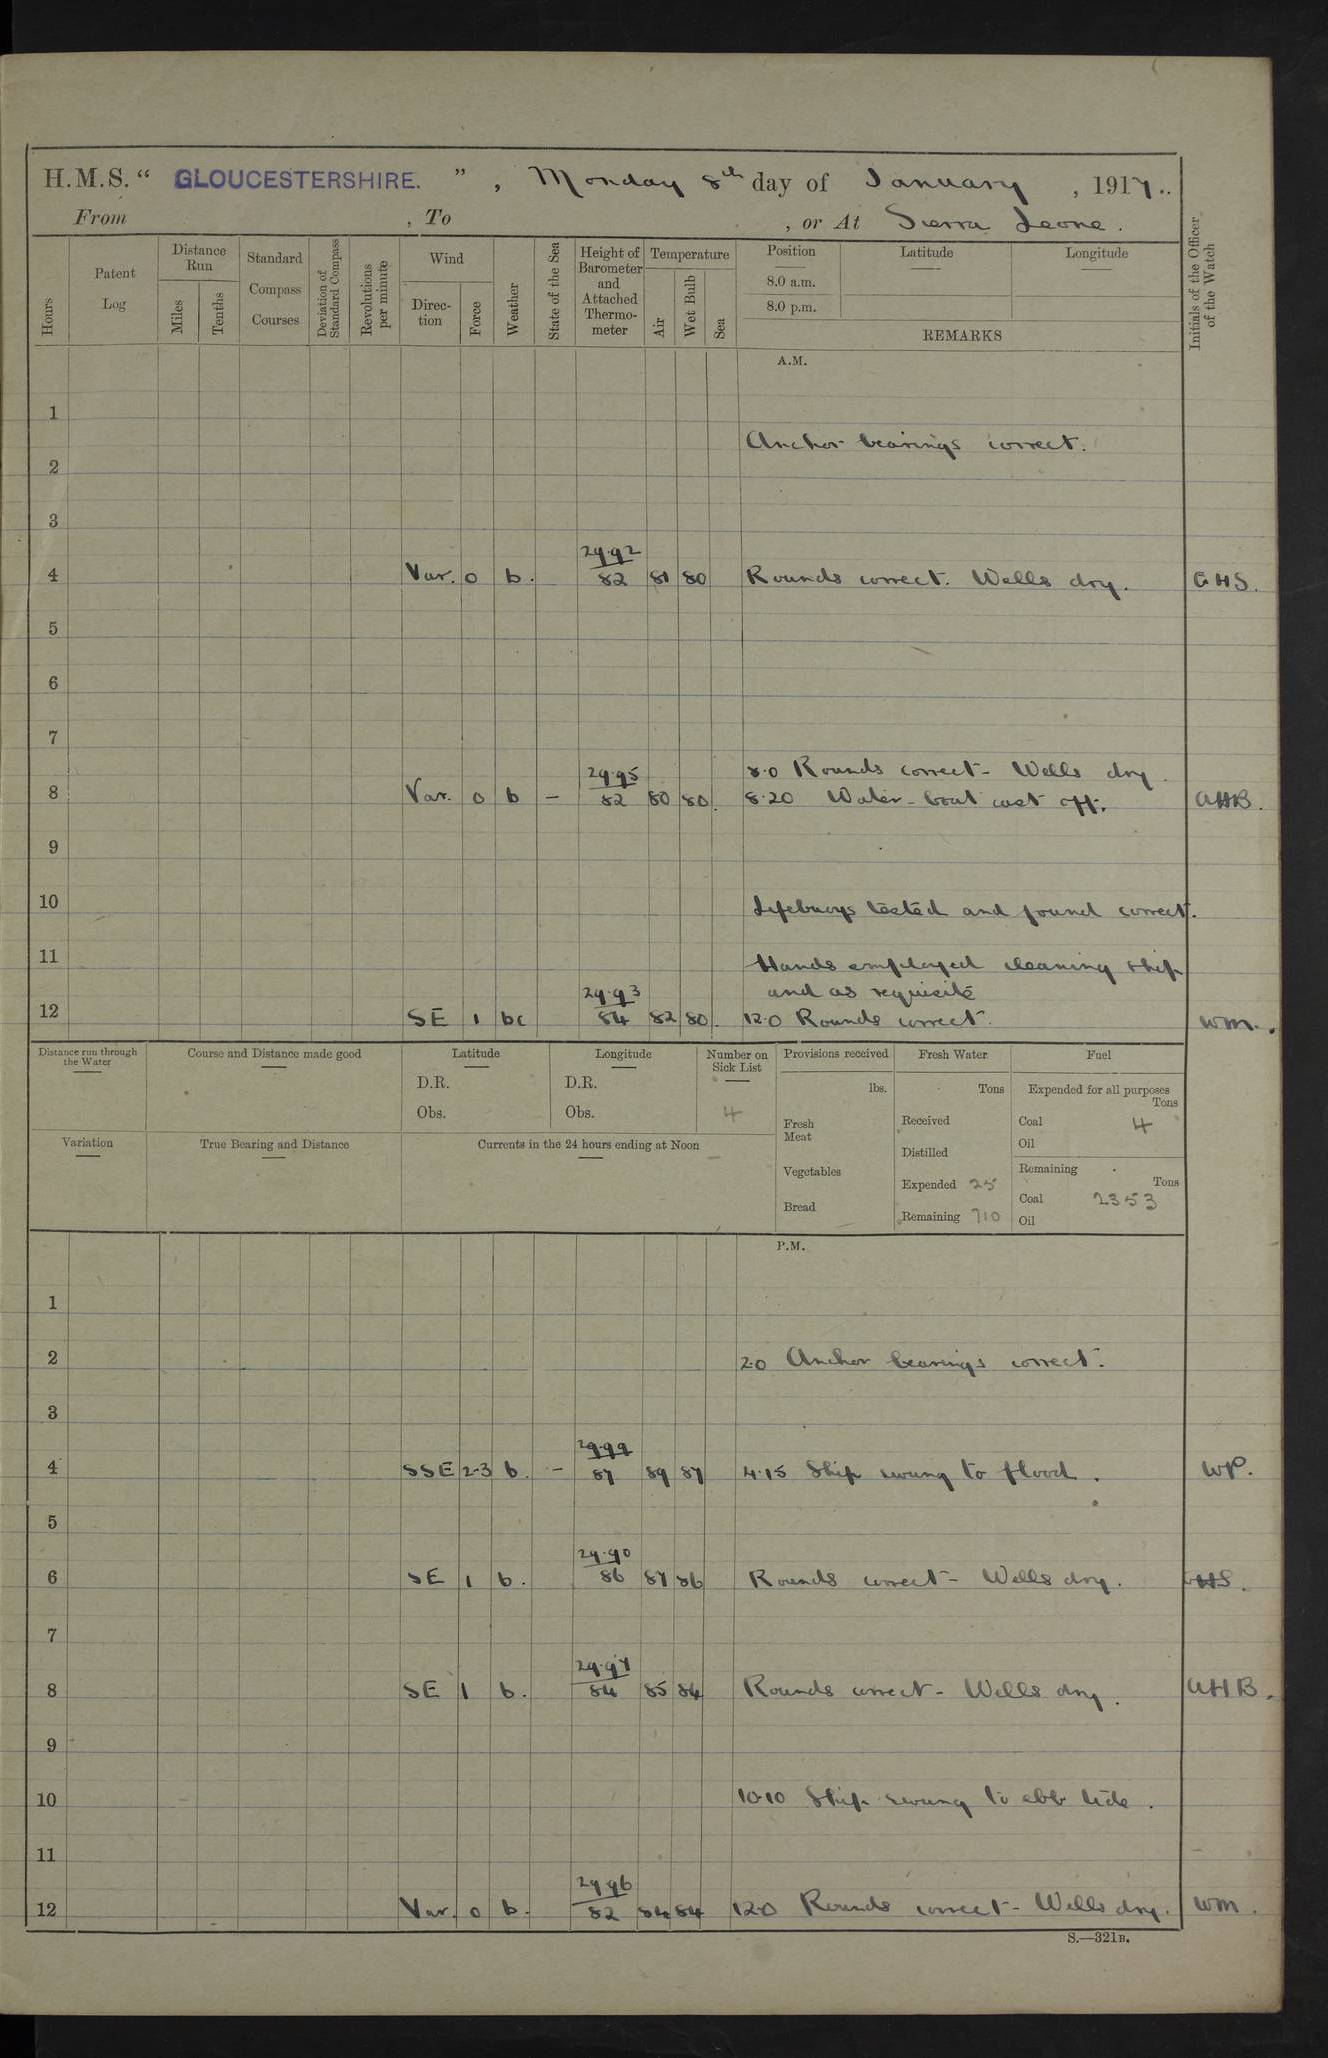 H.M.S. “ GLOUCESTERSHIRE. ” , Monday 8th day of January , 1917.
From , To , or At Sierra Leone.
Hours
Patent Log
Distance Run
Miles
Tenths
Standard Compass Courses
Deviation of Standard Compass
Revolutions per minute
Wind
Direc-tion
Force
Weather
State of the Sea
Height of Barometer and Attached Thermo-meter
Temperature
Air
Wet Bulb
Sea
Position
8.0 a.m.
8.0 p.m.
Latitude
Longitude
REMARKS
Initials of the Officer of the Watch
A.M.
1
Anchor bearings correct.
2
3
29.92
4 Var. 0 b. 82 81 80 Rounds correct. Wells dry. GHS.
5
6
7
29.95 8.0 Rounds correct - Wells dry.
8 Var. 0 b – 82 80 80. 8.20 Water-boat cast off. AHB.
9
10 Lifebuoys tested and found correct.
11 Hands employed cleaning ship
29.93 and as requisite
12 SE 1 bc 84 82 80. 12.0 Rounds correct. WM.
Distance run through the Water
Course and Distance made good
Latitude
D.R.
Obs.
Longitude
D.R.
Obs.
Number on Sick List
4
Provisions received
lbs.
Fresh Meat
Vegetables
Bread
Fresh Water
Tons
Received
Distilled
Expended 25
Remaining 710
Fuel
Expended for all purposes
Tons
Coal 4
Oil
Remaining
Tons
Coal 2353
Oil
Variation
True Bearing and Distance
Currents in the 24 hours ending at Noon
P.M.
1
2 2.0 Anchor bearings correct.
3
29.99
4 SSE 2-3 b. – 87 89 87 4.15 Ship swung to flood. WP.
5
29.90
6 SE 1 b. 86 87 86 Rounds correct - Wells dry. GHS.
7
29.97
8 SE 1 b. 84 85 84 Rounds correct - Wells dry. AHB.
9
10 10.10 Ship swung to ebb tide.
11
29.96
12 Var. 0 b. 82 84 84 12.0 Rounds correct - Wells dry. WM.
S.—321B.